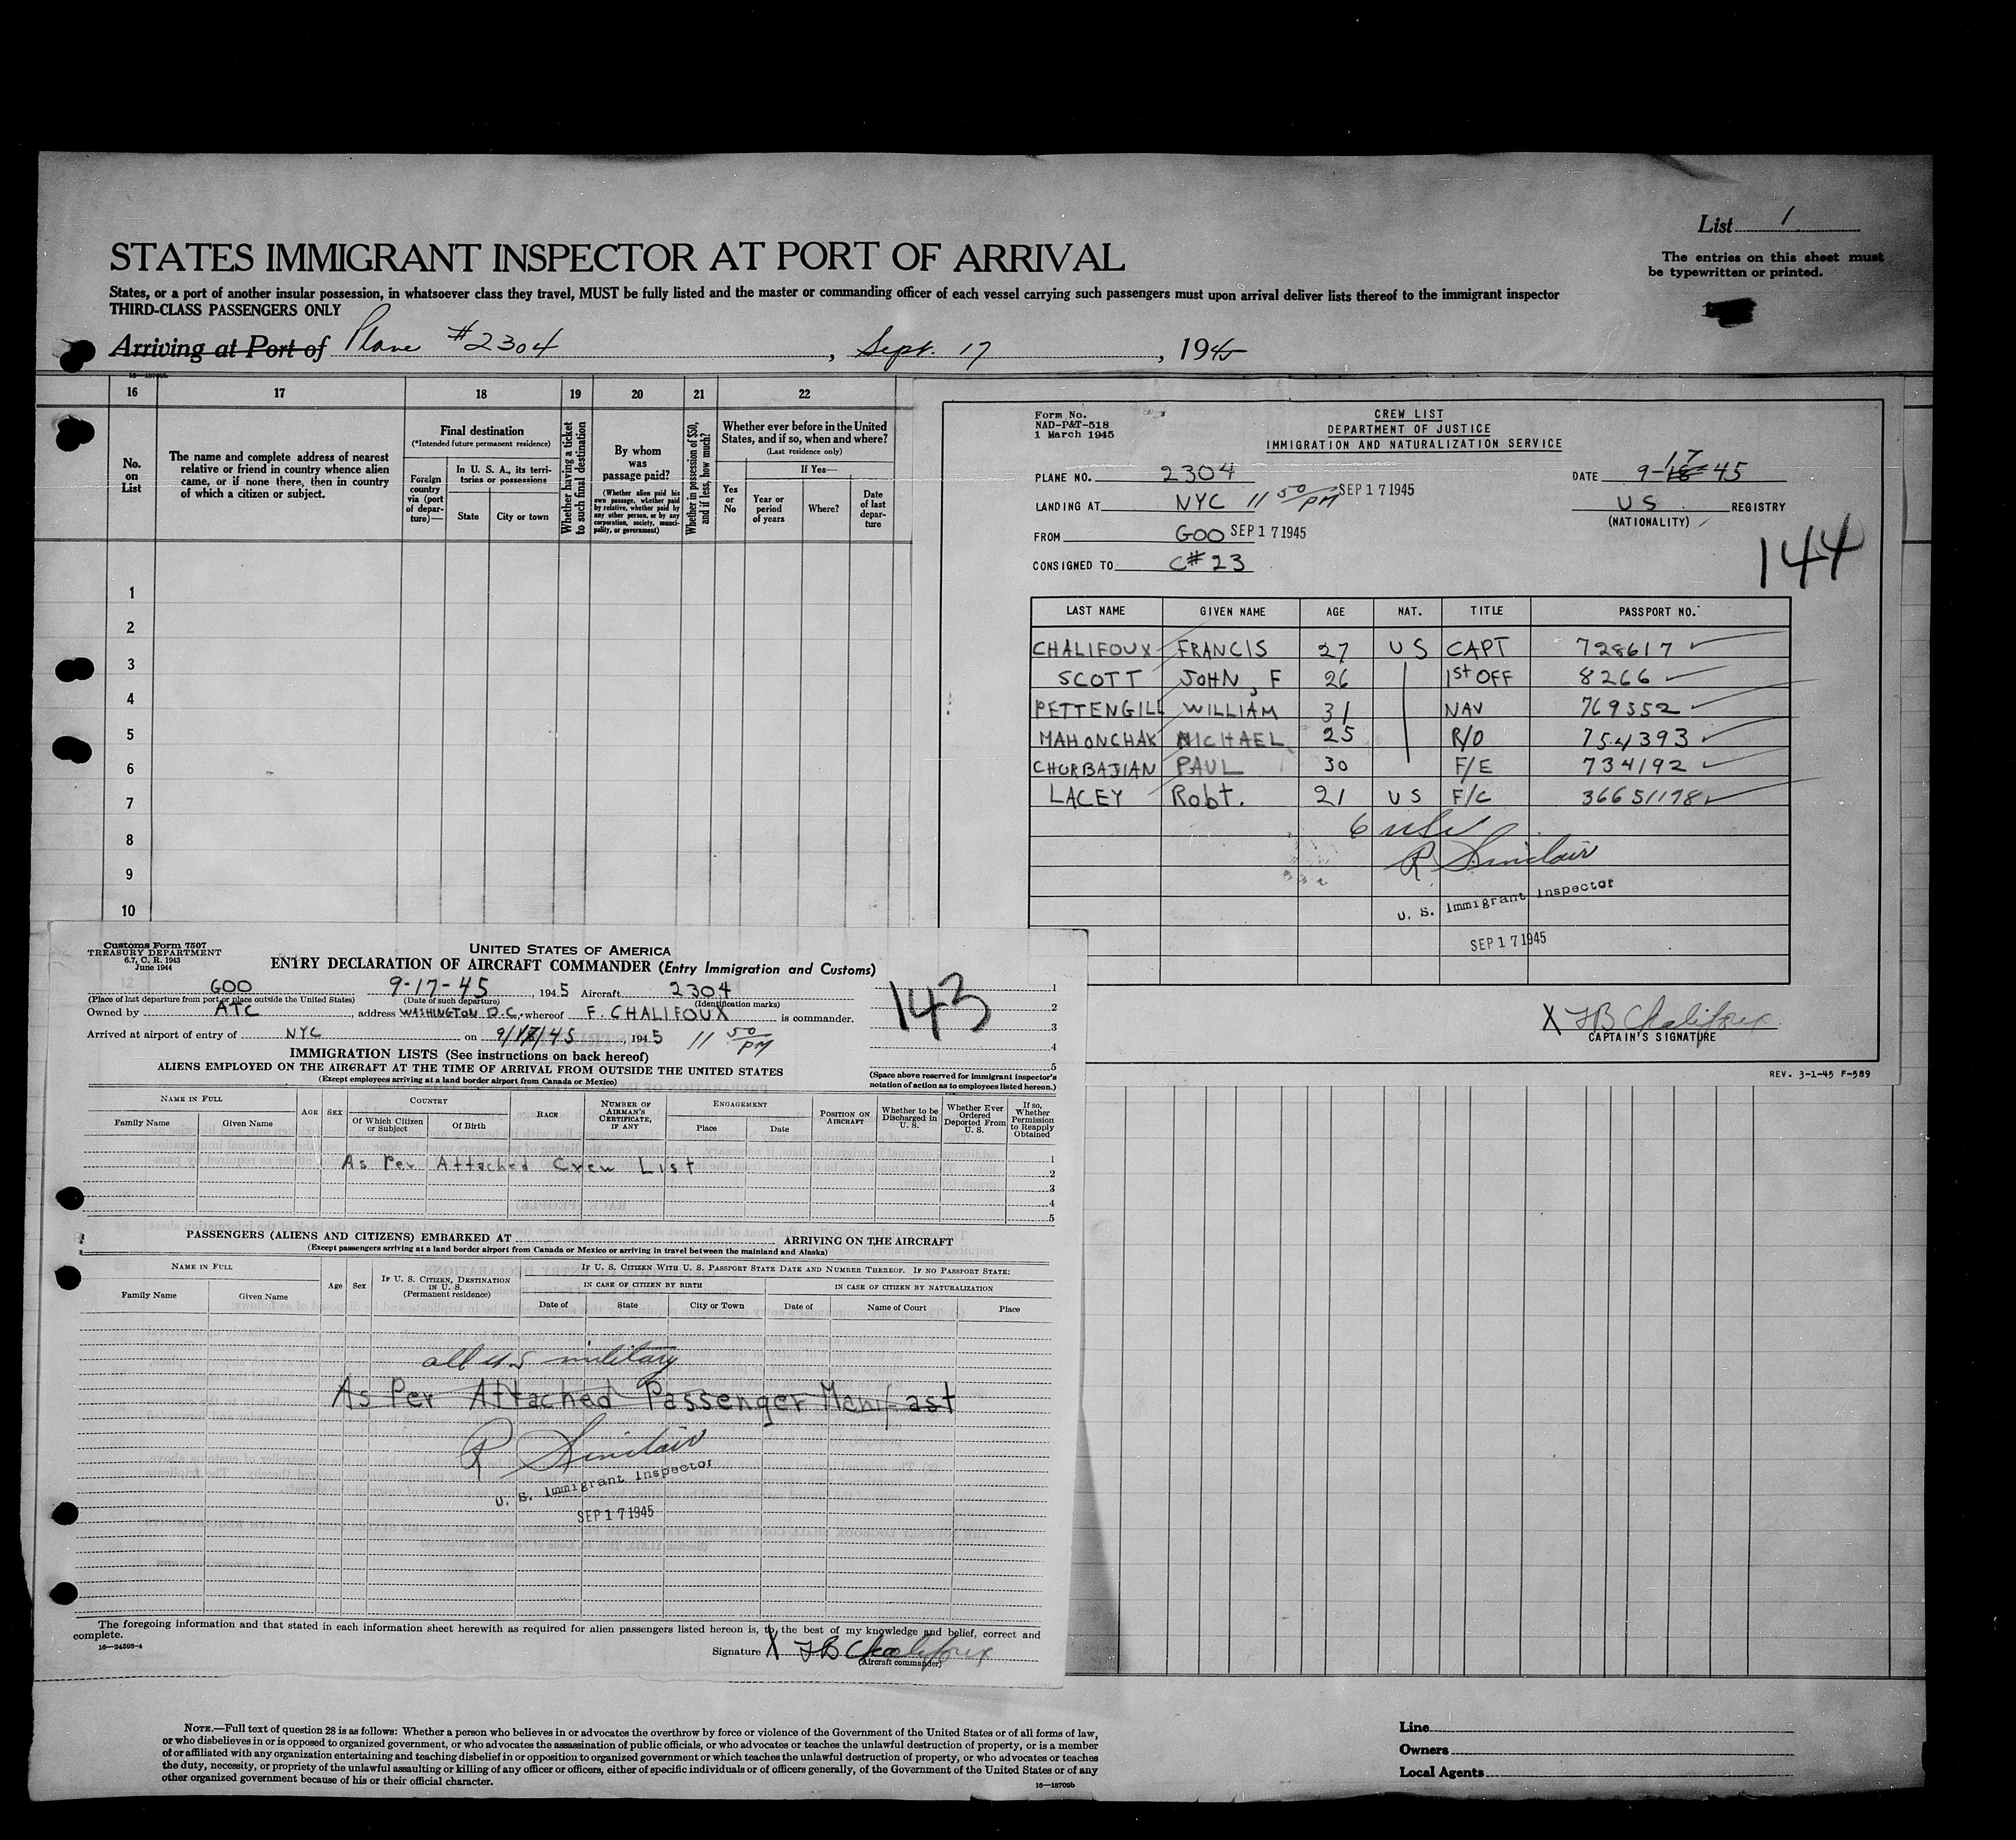 List 1.
The entries on this sheet must
be typewritten or printed.
STATES IMMIGRANT INSPECTOR AT PORT OF ARRIVAL
States, or a port of another insular possession, in whatsoever class they travel, MUST be fully listed and the master or commanding officer of each vessel carrying such passengers must upon arrival deliver lists thereof to the immigrant inspector
THIRD-CLASS PASSENGERS ONLY
Arriving at Port of Plane #2304, Sept. 17, 1945
16 17 18 19 20 21 22
No. on List
The name and complete address of nearest
relative or friend in country whence alien
came, or if none there, then in country
of which a citizen or subject.
Final destination
(*Intended future permanent residence)
Foreign country via (port of departure)—
In U. S. A., its territories or possessions
State
City or town
Whether having a ticket to such final destination
By whom was passage paid?
(Whether alien paid his own passage, whether paid by relative, whether paid by any other person, or by any corporation, society, municipality, or government)
Whether in possession of $50, and if less, how much?
Whether ever before in the United
States, and if so, when and where?
(Last residence only)
If Yes—
Yes or No
Year or period of years
Where?
Date of last departure
1
2
3
4
5
6
7
8
9
10
Form No.
NAD-P&T-518
1 March 1945
CREW LIST
DEPARTMENT OF JUSTICE
IMMIGRATION AND NATURALIZATION SERVICE
PLANE NO. 2304 DATE 9-17-45
LANDING AT NYC 11 50/PM SEP 17 1945 US REGISTRY
(NATIONALITY)
FROM GOO SEP 17 1945
CONSIGNED TO C#23
144
LAST NAME GIVEN NAME AGE NAT. TITLE PASSPORT NO.
CHALIFOUX FRANCIS 27 US CAPT 728617
SCOTT JOHN, F 26 1st OFF 8266
PETTENGILL WILLIAM 31 NAV 769352
MAHONCHAK MICHAEL 25 R/O 754393
CHORBAJIAN PAUL 30 F/E 734192
LACEY Robt. 21 US F/C 36651198
6 USC
R Sinclair
U. S. Immigrant Inspector
SEP 17 1945
X FB Chalifoux
CAPTAIN'S SIGNATURE
REV. 3-1-45 F-589
Customs Form 7507
TREASURY DEPARTMENT
6.7, C. R. 1943
June 1944
UNITED STATES OF AMERICA
ENTRY DECLARATION OF AIRCRAFT COMMANDER (Entry Immigration and Customs)
GOO 9-17-45, 1945 Aircraft 2304
(Place of last departure from port or place outside the United States) (Date of such departure) (Identification marks)
Owned by ATC, address WASHINGTON D.C., whereof F. CHALIFOUX is commander.
Arrived at airport of entry of NYC on 9/17/45, 1945 11 50/PM
143
1
2
3
4
5
(Space above reserved for immigrant inspector's
notation of action as to employees listed hereon.)
IMMIGRATION LISTS (See instructions on back hereof)
ALIENS EMPLOYED ON THE AIRCRAFT AT THE TIME OF ARRIVAL FROM OUTSIDE THE UNITED STATES
(Except employees arriving at a land border airport from Canada or Mexico)
NAME IN FULL
Family Name
Given Name
AGE
SEX
COUNTRY
Of Which Citizen or Subject
Of Birth
RACE
NUMBER OF AIRMAN'S CERTIFICATE, IF ANY
ENGAGEMENT
Place
Date
POSITION ON AIRCRAFT
Whether to be Discharged in U. S.
Whether Ever Ordered Deported From U. S.
If so, Whether Permission to Reapply Obtained
As Per Attached Crew List
1
2
3
4
5
PASSENGERS (ALIENS AND CITIZENS) EMBARKED AT ARRIVING ON THE AIRCRAFT
(Except passengers arriving at a land border airport from Canada or Mexico or arriving in travel between the mainland and Alaska)
NAME IN FULL
Family Name
Given Name
Age
Sex
IF U. S. CITIZEN, DESTINATION IN U. S.
(Permanent residence)
IF U. S. CITIZEN WITH U. S. PASSPORT STATE DATE AND NUMBER THEREOF. IF NO PASSPORT STATE:
IN CASE OF CITIZEN BY BIRTH
IN CASE OF CITIZEN BY NATURALIZATION
Date of
State
City or Town
Date of
Name of Court
Place
all US military
As Per Attached Passenger Manifast
R Sinclair
U. S. Immigrant Inspector
SEP 17 1945
The foregoing information and that stated in each information sheet herewith as required for alien passengers listed hereon is, to the best of my knowledge and belief, correct and
complete.
16—24598-4
Signature X FB Chalifoux
(Aircraft commander)
NOTE.—Full text of question 28 is as follows: Whether a person who believes in or advocates the overthrow by force or violence of the Government of the United States or of all forms of law,
or who disbelieves in or is opposed to organized government, or who advocates the assassination of public officials, or who advocates or teaches the unlawful destruction of property, or is a member
of or affiliated with any organization entertaining and teaching disbelief in or opposition to organized government or which teaches the unlawful destruction of property, or who advocates or teaches
the duty, necessity, or propriety of the unlawful assaulting or killing of any officer or officers, either of specific individuals or of officers generally, of the Government of the United States or of any
other organized government because of his or their official character.
16—18709b
Line
Owners
Local Agents